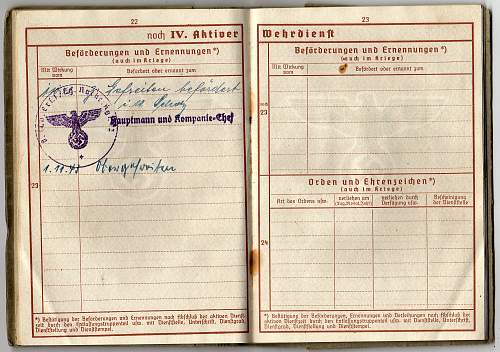 22
noch IV. Aktiver
Beförderungen und Ernennungen*)
(auch im Kriege)
Mit Wirkung vom
Befördert oder ernannt zum
Gefreiten befördert
Hauptmann und Kompanie-Chef
Obergefreiten
23
*) Bestätigung der Beförderungen und Ernennungen nach Abschluß der aktiven Dienst-
zeit durch den Entlassungstruppenteil usw. mit Dienststelle, Unterschrift, Dienstgrad,
Dienststellung und Dienststempel.
23
Wehrdienst
Beförderungen und Ernennungen*)
(auch im Kriege)
Mit Wirkung vom
Befördert oder ernannt zum
noch
23
Orden und Ehrenzeichen*)
(auch im Kriege)
Art des Ordens usw.
verliehen am
(Tag, Monat, Jahr)
verliehen durch
Verfügung usw.
Bescheinigung
der Dienststelle
24
*) Bestätigung der Beförderungen, Ernennungen und Verleihungen nach Abschluß der
aktiven Dienstzeit durch den Entlassungstruppenteil usw. mit Dienststelle, Unterschrift,
Dienstgrad, Dienststellung und Dienststempel.